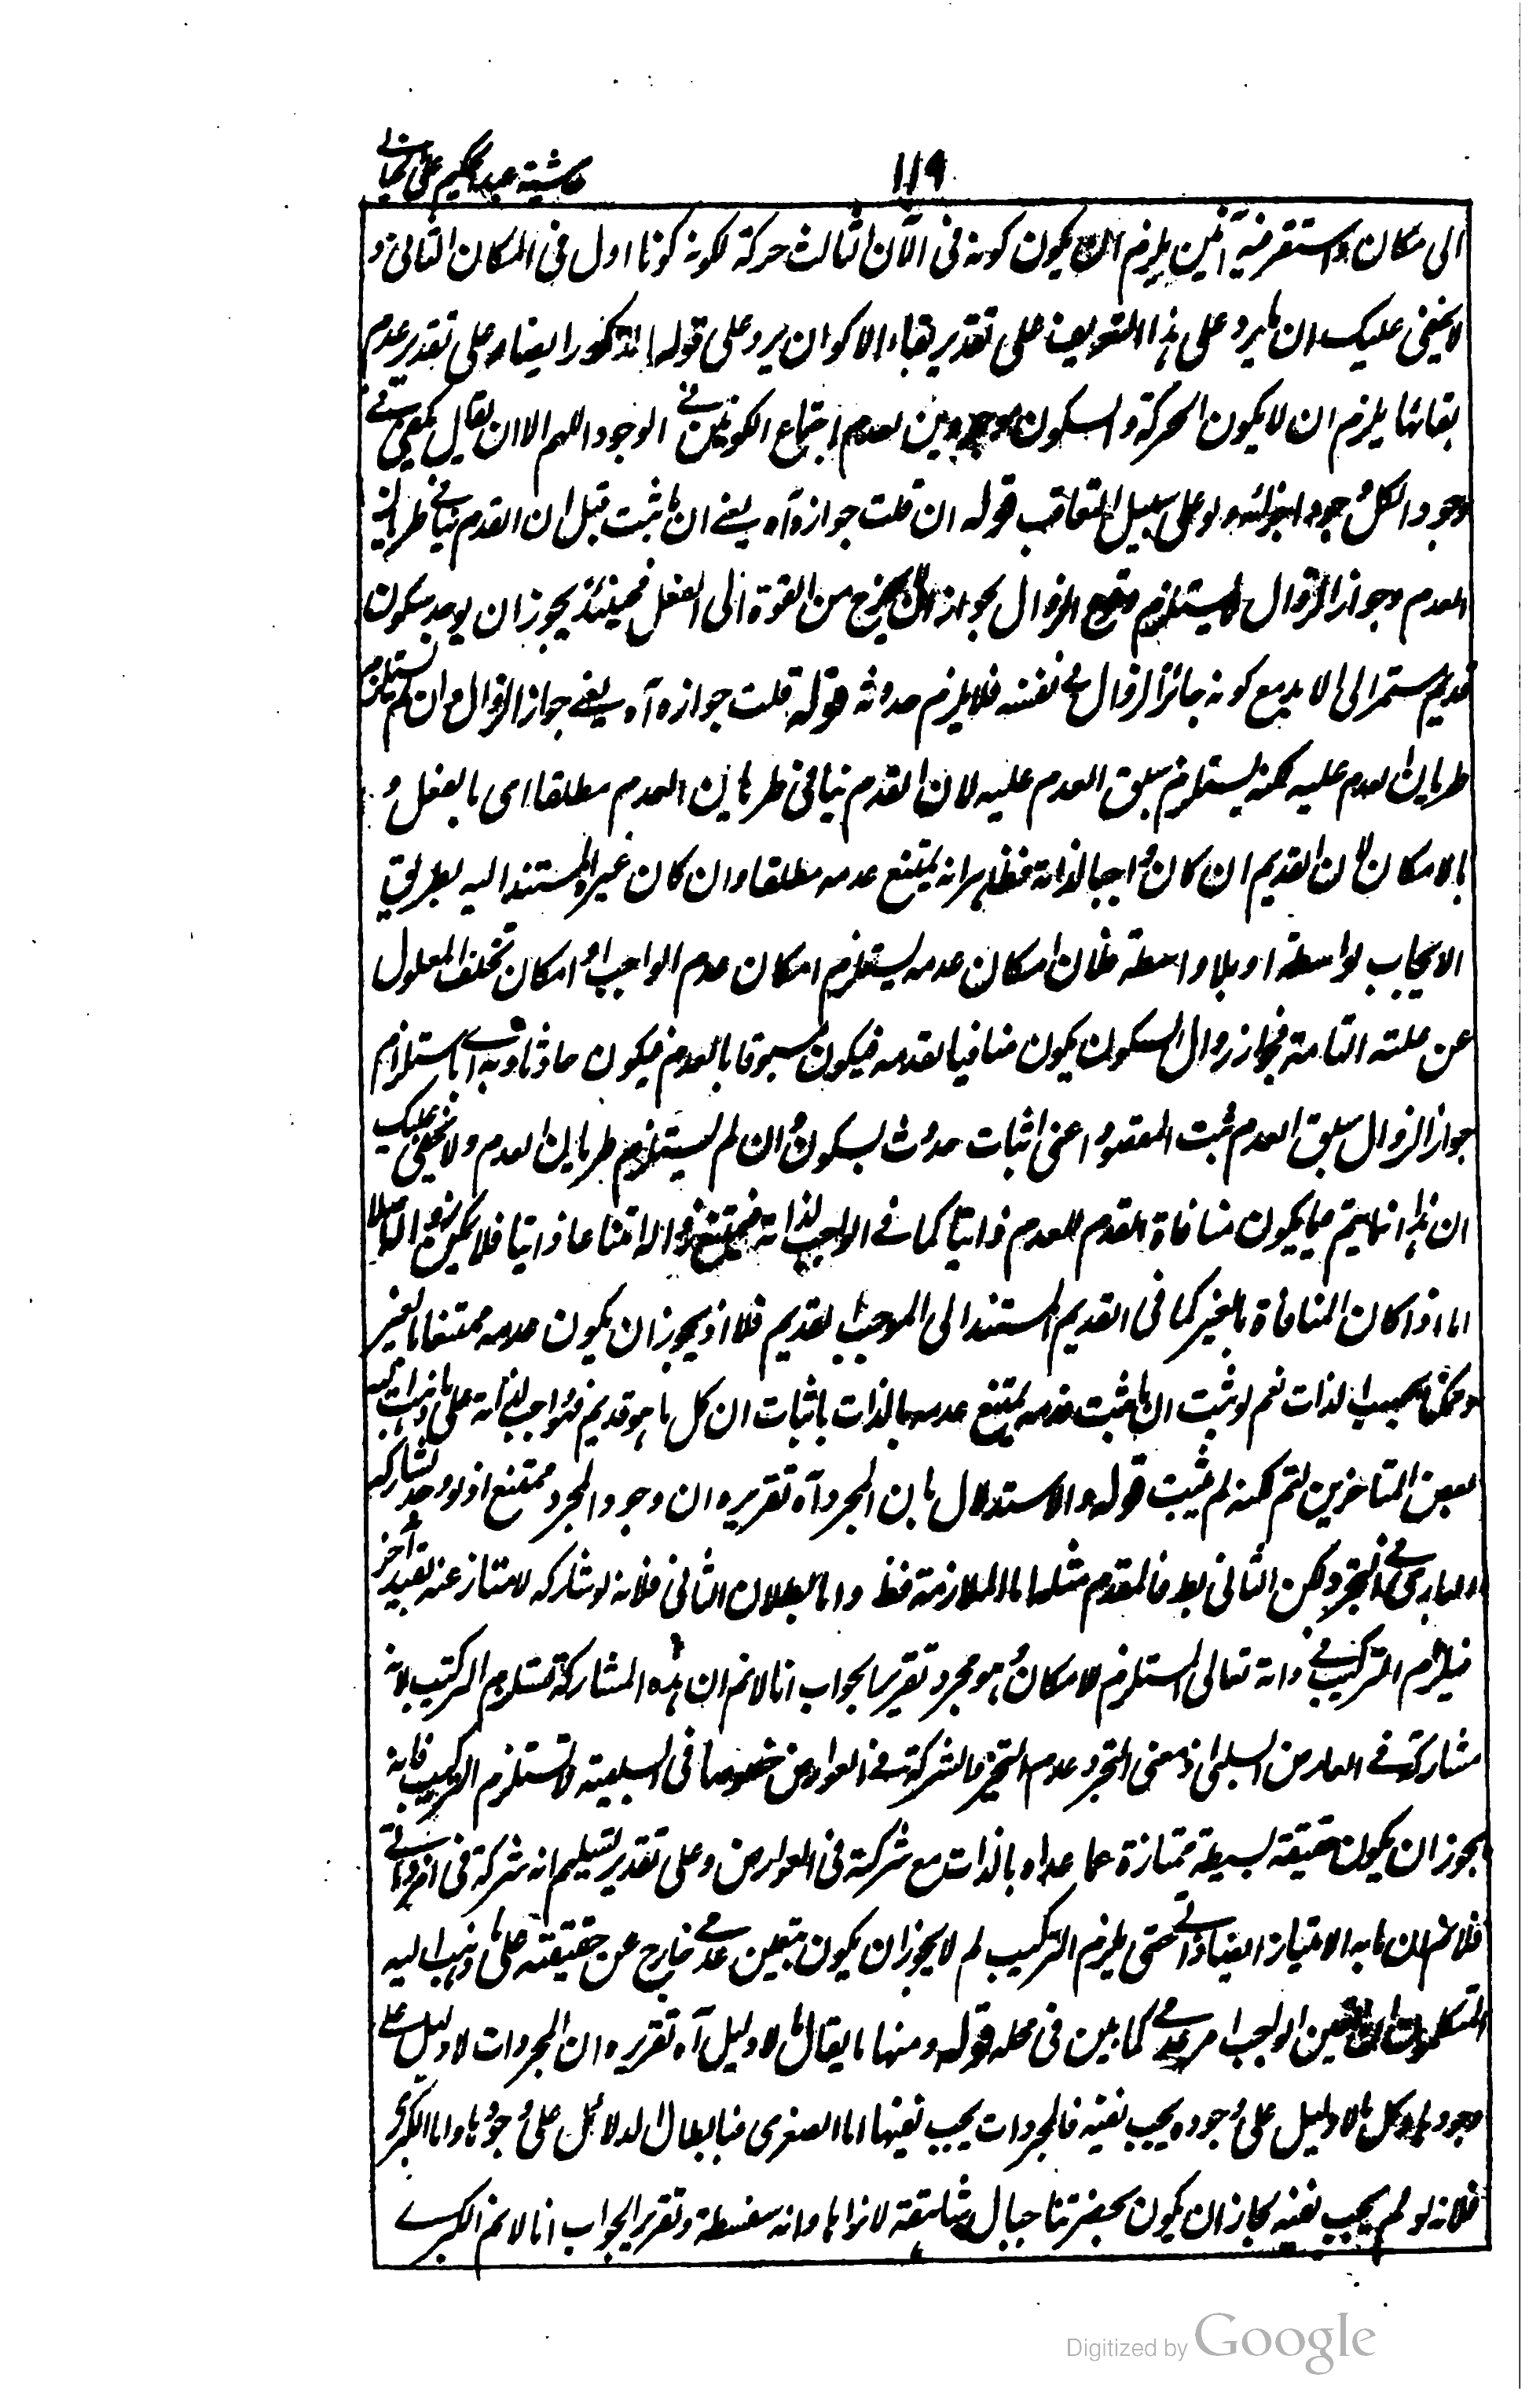 ١١٩
حاشية عبد الحكيم على الخيالى
الى مكان واستقر فيه آنين يلزم ان يكون كونه فى الآن الثالث حركة لكونه كونا اول فى المكان الثانى و
لا يخفى عليك ان ما يرد على هذا التعريف على تقدير بقاء الاكوان يرد على قوله المذكور ايضا وعلى تقدير عدم
بقائها يلزم ان لا يكون الحركة والسكون موجودين لعدم اجتماع الكونين فى الوجود اللهم الا ان يقال يكفى فى
وجود الكل وجود اجزائه ولو على سبيل التعاقب قوله ان قلت جوازه آه يعنى ان ما ثبت قبل ان القدم ينافى طريان
العدم وجواز الزوال لا يستلزم وقوع الزوال لجواز ان لا يخرج من القوة الى الفعل فحينئذ يجوز ان يوجد سكون
قديم مستمر الى الابد مع كونه جائز الزوال فى نفسه فلا يلزم حدوثه قوله قلت جوازه آه يعنى جواز الزوال وان لم يستلزم
طريان العدم عليه لكنه يستلزم سبق العدم عليه لان القدم ينافى طريان العدم مطلقا اى بالفعل و
بالامكان لان القديم ان كان واجبا لذاته فظاهر انه يمتنع عدمه مطلقا وان كان غيره المستند اليه بطريق
الايجاب بواسطة او بلا واسطة فلان امكان عدمه يستلزم امكان عدم الواجب او امكان تخلف المعلول
عن علته التامة فجواز زوال السكون يكون منافيا لقدمه فيكون مسبوقا بالعدم فيكون حادثا وبه اى باستلزام
جواز الزوال سبق العدم ثبت المقصود اعنى اثبات حدوث السكون وان لم يستلزم طريان العدم ولا يخفى عليك
ان هذا انما يتم فيما يكون منافاة القدم للعدم ذاتيا كما فى الواجب لذاته فيمتنع زواله امتناعا ذاتيا فلا يمكن زواله اصلا
اما اذا كان المنافاة بالغير كما فى القديم المستند الى الموجب القديم فلا اذ يجوز ان يكون عدمه ممتنعا بالغير
وممكنا بحسب الذات نعم لو ثبت ان ما ثبت قدمه يمتنع عدمه بالذات باثبات ان كل ما هو قديم فهو واجب لذاته على ما ذهب اليه
بعض المتاخرين لتم لكنه لم يثبت قوله والاستدلال بان المجرد آه تقريره ان وجود المجرد ممتنع اذ لو وجد لشاركه
البارى فى التجرد لكن الثانى بط فالمقدم مثله اما الملازمة فظ واما بطلان الثانى فلانه لو شاركه لامتاز عنه بقيد آخر
فيلزم التركيب فى ذاته تعالى المستلزم للامكان وهو مجرد تقرير الجواب انا لا نم ان هذه المشاركة تستلزم التركيب لانه
مشاركة فى العارض السلبى اذ معنى التجرد عدم التحيز والشركة فى العوارض خصوصا فى السلبية لا تستلزم التركيب فانه
يجوز ان يكون حقيقة بسيطة ممتازة عما عداه بالذات مع شركته فى العوارض وعلى تقدير تسليم انه شركة فى امر ذاتى
فلا نم ان ما به الامتياز ايضا ذاتى حتى يلزم التركيب لم لا يجوز ان يكون بتعين عدمى خارج عن حقيقته على ما ذهب اليه
المتكلمون ان تعين الواجب امر عدمى كما بين فى محله قوله ومنها ما يقال لا دليل آه تقريره ان المجردات لا دليل على
وجودها وكل ما لا دليل على وجوده يجب نفيه فالمجردات يجب نفيها اما الصغرى فبابطال الدلائل على وجودها واما الكبرى
فلانه لو لم يجب نفيه لجاز ان يكون بحضرتنا جبال شاهقة لا نراها وانه سفسطة وتقرير الجواب انا لا نم الكبرى
Digitized by Google